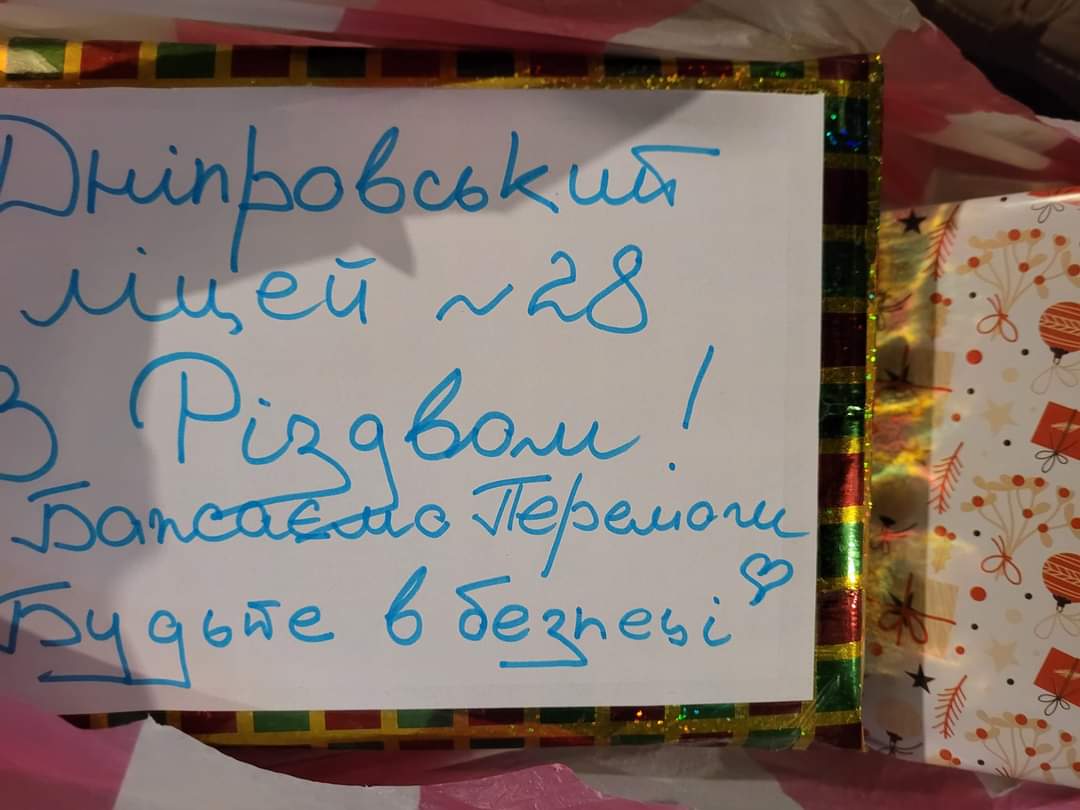 Дніпровський
ліцей ~ 28
З Різдвом!
Бажаємо Перемоги
Будьте в безпеці ♡